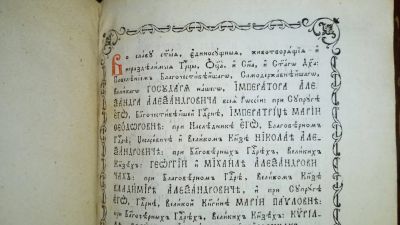 Во славу ст҃ы́ѧ, є҆диносꙋ́щныѧ, животворѧ́щїѧ и҆
нераздѣли́мыѧ Трⷪ҇цы, Ѻ҆ц҃а̀, и҆ Сн҃а, и҆ Ст҃а́гѡ Дх҃а:
Повелѣ́нїемъ Благочести́вѣйшагѡ, Самодержа́внѣйшагѡ,
Вели́кагѡ ГОСꙊДА́РѦ на́шегѡ, І҆МПЕРА́ТОРА А҆ЛЕ-
ѮА́НДРА А҆ЛЕѮА́НДРОВИЧА всеѧ̀ Рѡссі́и: при Сꙋпрꙋ́гѣ
Е҆ГѠ̀, Благочести́вѣйшей Гдⷭ҇рнѣ, І҆МПЕРАТРИ́ЦѢ МАРІ́И
ѲЕО́ДѠРОВНѢ: при Наслѣ́дникѣ Е҆ГѠ̀, Благовѣ́рномъ
Гдⷭ҇рѣ, Цесаре́вичѣ и҆ Вели́комъ Кнѧ́зѣ НІКОЛА́Ѣ А҆ЛЕ-
ѮА́НДРОВИЧѢ: при Бл҃говѣ́рныхъ Гдⷭ҇рѣхъ, Вели́кихъ
Кнѧзѣ́хъ: ГЕѠ́РГІИ и҆ МІХАИ́ЛѢ А҆ЛЕѮА́НДРОВИ-
ЧАХЪ: при Благовѣ́рномъ Гдⷭ҇рѣ, Вели́комъ Кнѧ́зѣ
ВЛАДИ́МІРѢ А҆ЛЕѮА́НДРОВИЧѢ, и҆ при Сꙋпрꙋ́гѣ
Е҆ГѠ̀, Гдⷭ҇рнѣ, Вели́кой Кнѧги́нѣ МАРІ́И ПА́ѴЛОВНѢ:
при Бл҃говѣ́рныхъ Гдⷭ҇рѣхъ, Вели́кихъ Кнѧзѣ́хъ: КѴРІ́Л-